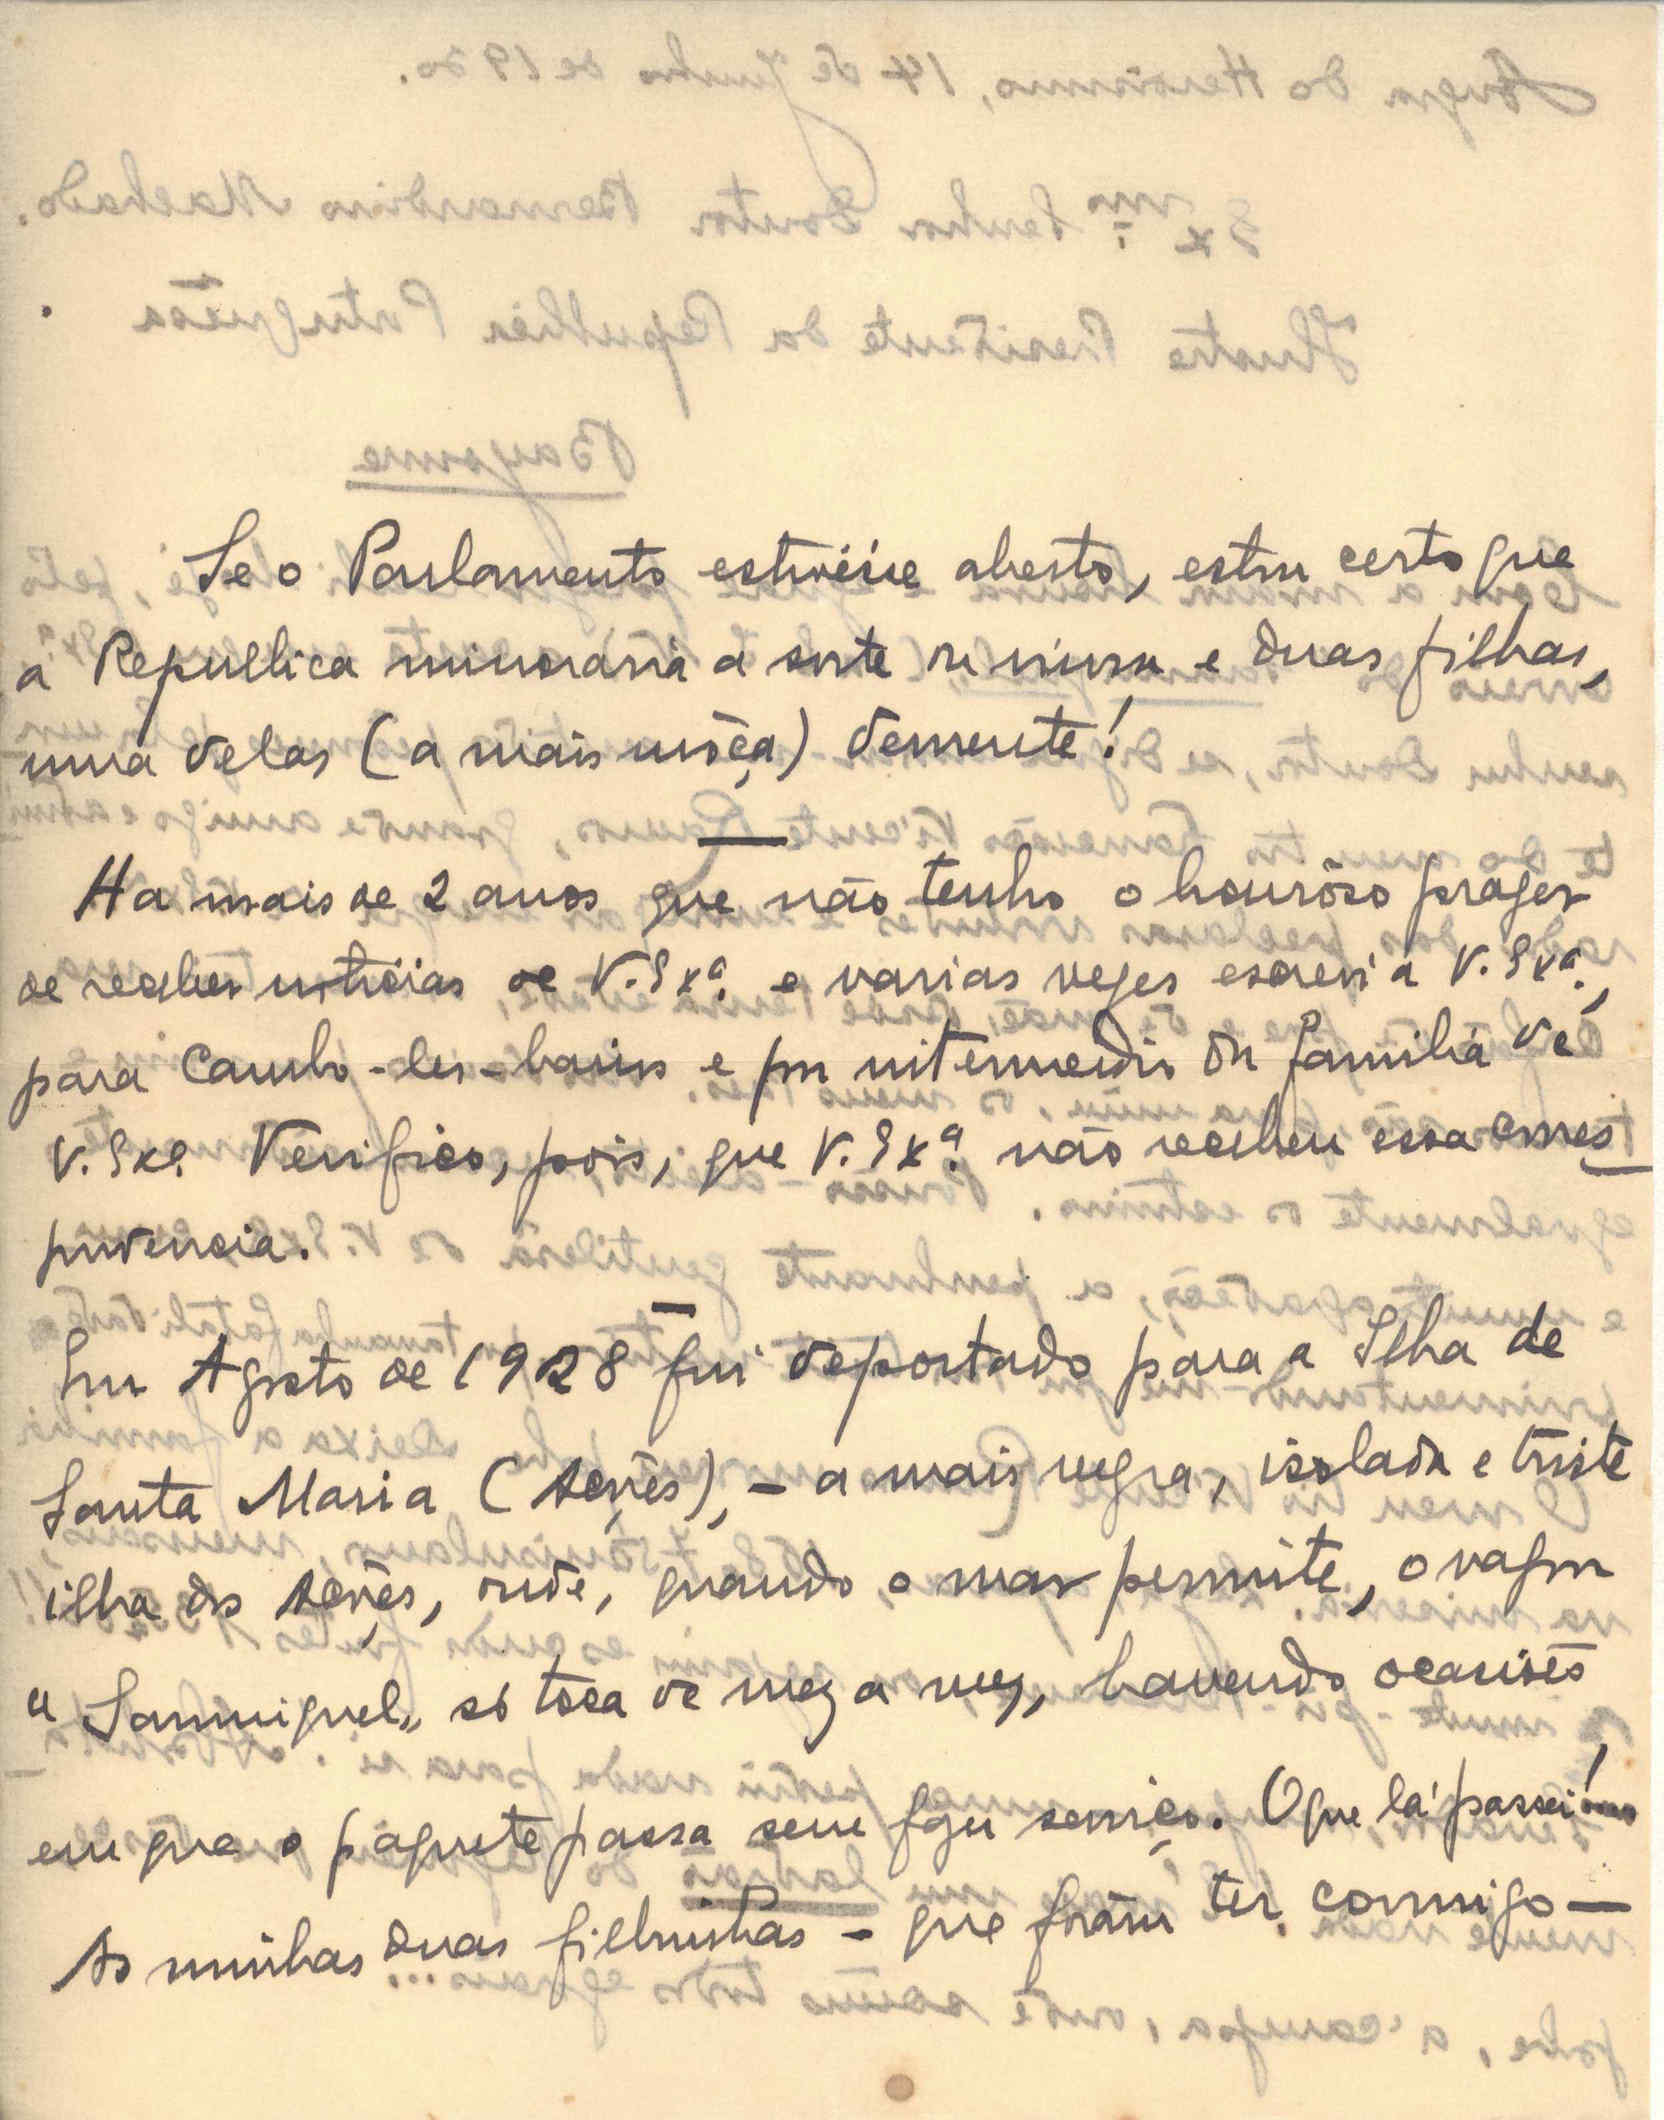 Se o Parlamento estivésse aberto, estou certo que
a Republica minoraria a sorte da viuva e duas filhas,
uma delas (a mais môça) demente!
Ha mais de 2 anos que não tenho o honrôso prazer
de receber notícias de V. Exª. e varias vezes escrevi a V. Exª.,
para Cambo-les-bains e por intermedio da familia de
V. Exª. Verifico, pois, que V. Exª. não recebeu essa corres
pondencia.
Em Agosto de 1928 fui deportado para a Ilha de
Santa Maria (Açôres), - a mais negra, isolada e triste
ilha dos Açôres, onde, quando o mar permite, o vapor
"Sanmiguel" só tóca de mez a mez, havendo ocasiões
em que o paquete passa sem fazer serviço. O que lá passei!
As minhas duas filhinhas - que foram ter comigo -